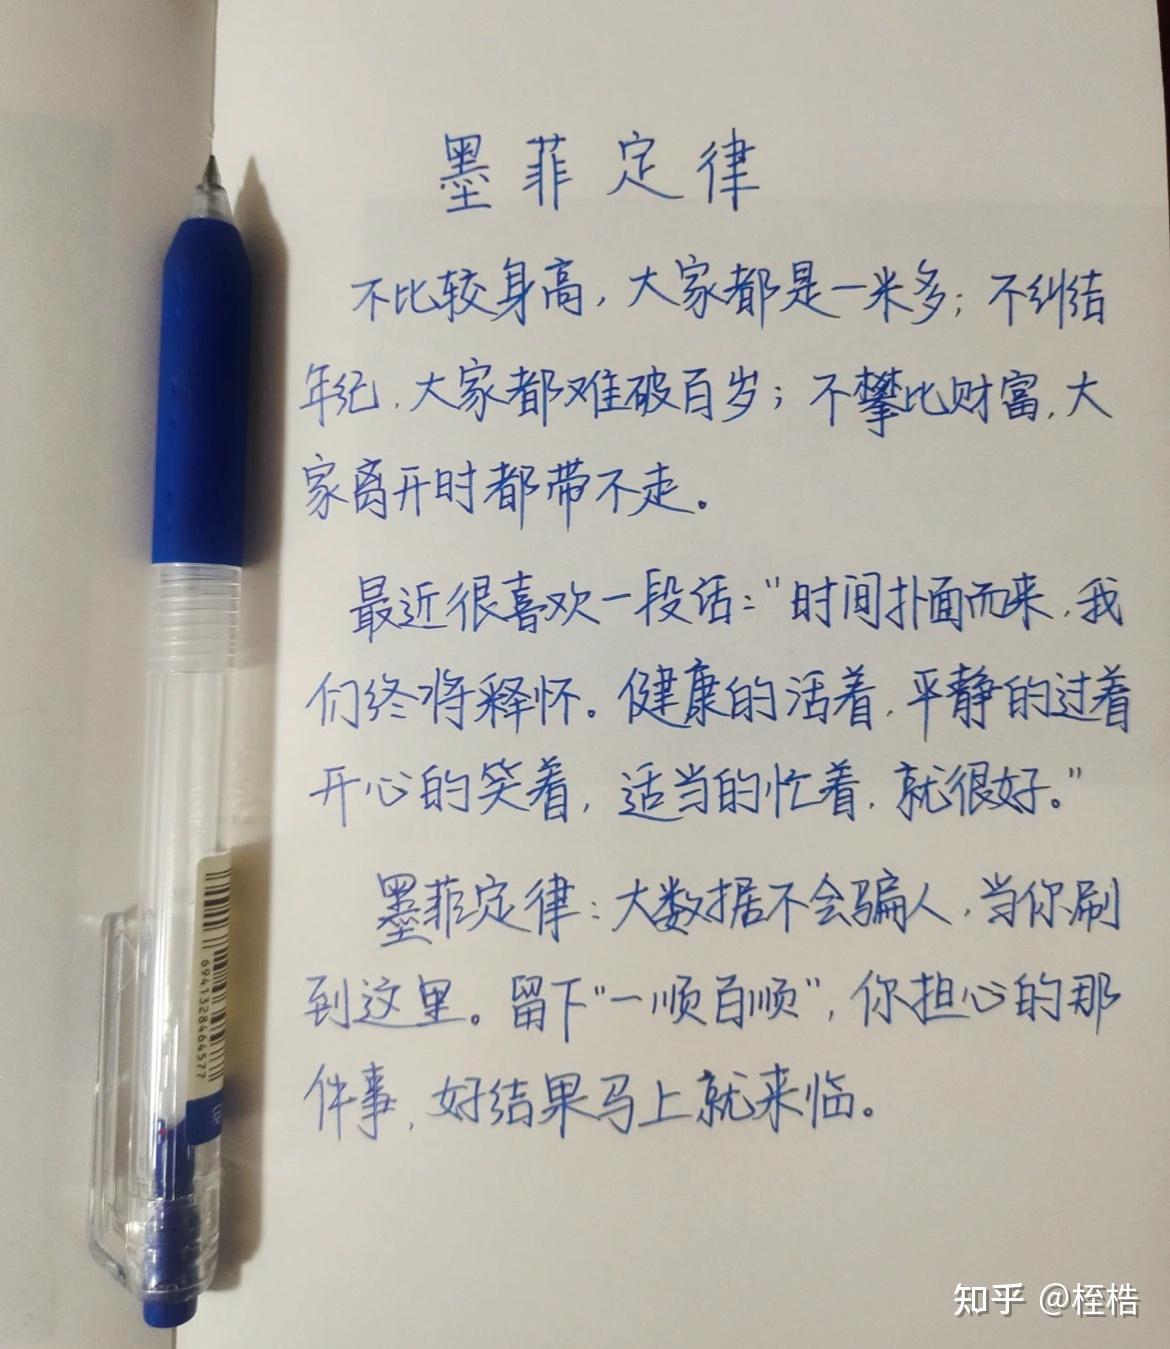 墨菲定律
不比较身高，大家都是一米多；不纠结
年纪，大家都难破百岁；不攀比财富，大
家离开时都带不走。
最近很喜欢一段话：“时间扑面而来，我
们终将释怀。健康的活着，平静的过着
开心的笑着，适当的忙着，就很好。”
墨菲定律：大数据不会骗人，当你刷
到这里。留下“一顺百顺”，你担心的那
件事，好结果马上就来临。
6941328464577
知乎 @桎梏